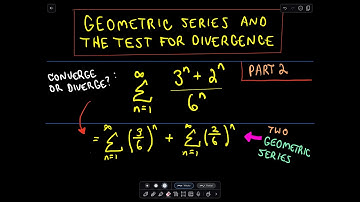 GEOMETRIC SERIES AND
THE TEST FOR DIVERGENCE
PART 2
CONVERGE
OR DIVERGE?:
∞ Σ n=1 (3^n + 2^n) / 6^n
= ∞ Σ n=1 (3/6)^n + ∞ Σ n=1 (2/6)^n
TWO
GEOMETRIC
SERIES